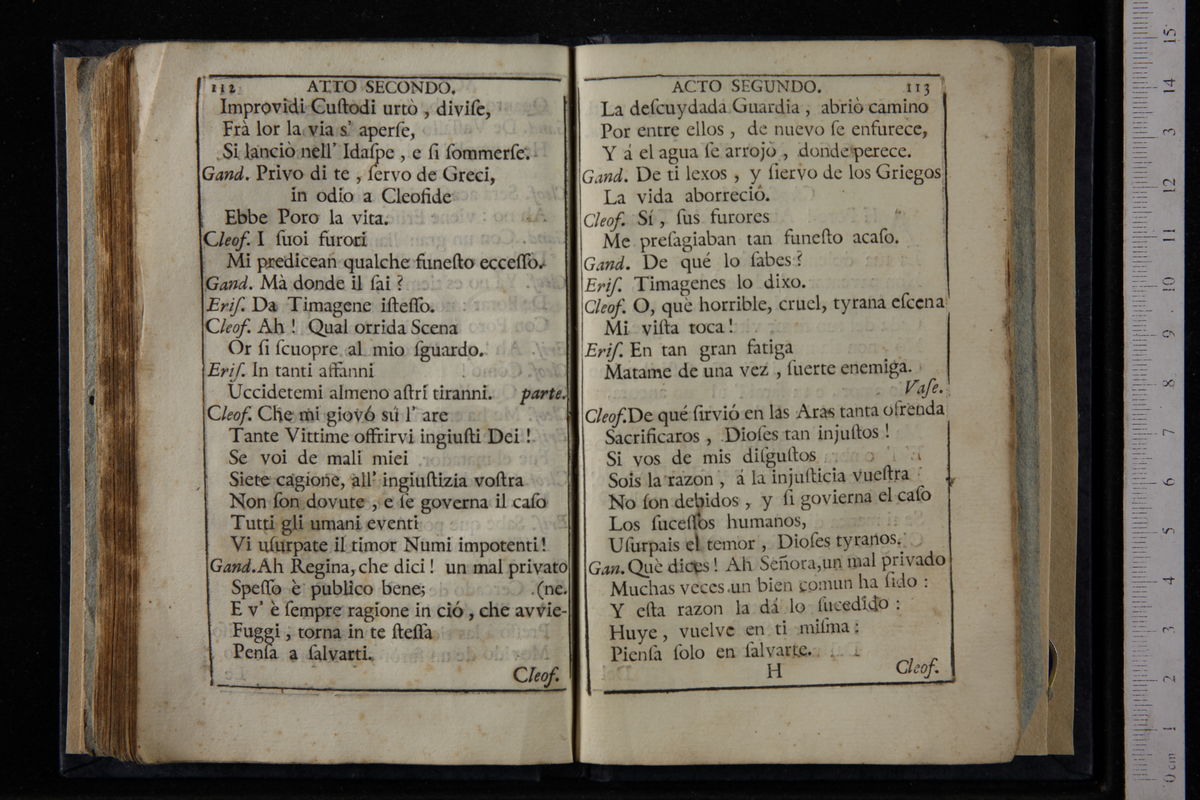 112 ATTO SECONDO.
Improvidi Cuſtodi urtò, diviſe,
Frà lor la via s' aperſe,
Si lanciò nell' Idaſpe, e ſi ſommerſe.
Gand. Privo di te, ſervo de Greci,
in odio a Cleofide
Ebbe Poro la vita.
Cleof. I ſuoi furori
Mi predicean qualche funeſto ecceſſo.
Gand. Mà donde il ſai?
Eriſ. Da Timagene iſteſſo.
Cleof. Ah! Qual orrida Scena
Or ſi ſcuopre al mio ſguardo.
Eriſ. In tanti affanni
Uccidetemi almeno aſtri tiranni. parte.
Cleof. Che mi giovó sú l' are
Tante Vittime offrirvi ingiuſti Dei!
Se voi de mali miei
Siete cagione, all' ingiuſtizia voſtra
Non ſon dovute, e ſe governa il caſo
Tutti gli umani eventi
Vi uſurpate il timor Numi impotenti!
Gand. Ah Regina, che dici! un mal privato
Speſſo è publico bene; (ne.
E v' è ſempre ragione in ció, che avvie-
Fuggi, torna in te ſteſſa
Penſa a ſalvarti.
Cleof.
ACTO SEGUNDO. 113
La deſcuydada Guardia, abriò camino
Por entre ellos, de nuevo ſe enfurece,
Y á el agua ſe arrojò, donde perece.
Gand. De ti lexos, y ſiervo de los Griegos
La vida aborreció.
Cleof. Sí, ſus furores
Me preſagiaban tan funeſto acaſo.
Gand. De qué lo ſabes?
Eriſ. Timagenes lo dixo.
Cleof. O, què horrible, cruel, tyrana eſcena
Mi viſta toca!
Eriſ. En tan gran fatiga
Matame de una vez, ſuerte enemiga.
Vaſe.
Cleof. De qué ſirvió en las Aras tanta ofrenda
Sacrificaros, Dioſes tan injuſtos!
Si vos de mis diſguſtos
Sois la razon, á la injuſticia vueſtra
No ſon debidos, y ſi govierna el caſo
Los ſuceſſos humanos,
Uſurpais el temor, Dioſes tyranos.
Gan. Què dices! Ah Señora, un mal privado
Muchas veces un bien comun ha ſido:
Y eſta razon la dá lo ſucedído:
Huye, vuelve en ti miſma:
Pienſa ſolo en ſalvarte.
H Cleof.
15
14
13
12
11
10
9
8
7
6
5
4
3
2
1
0 cm